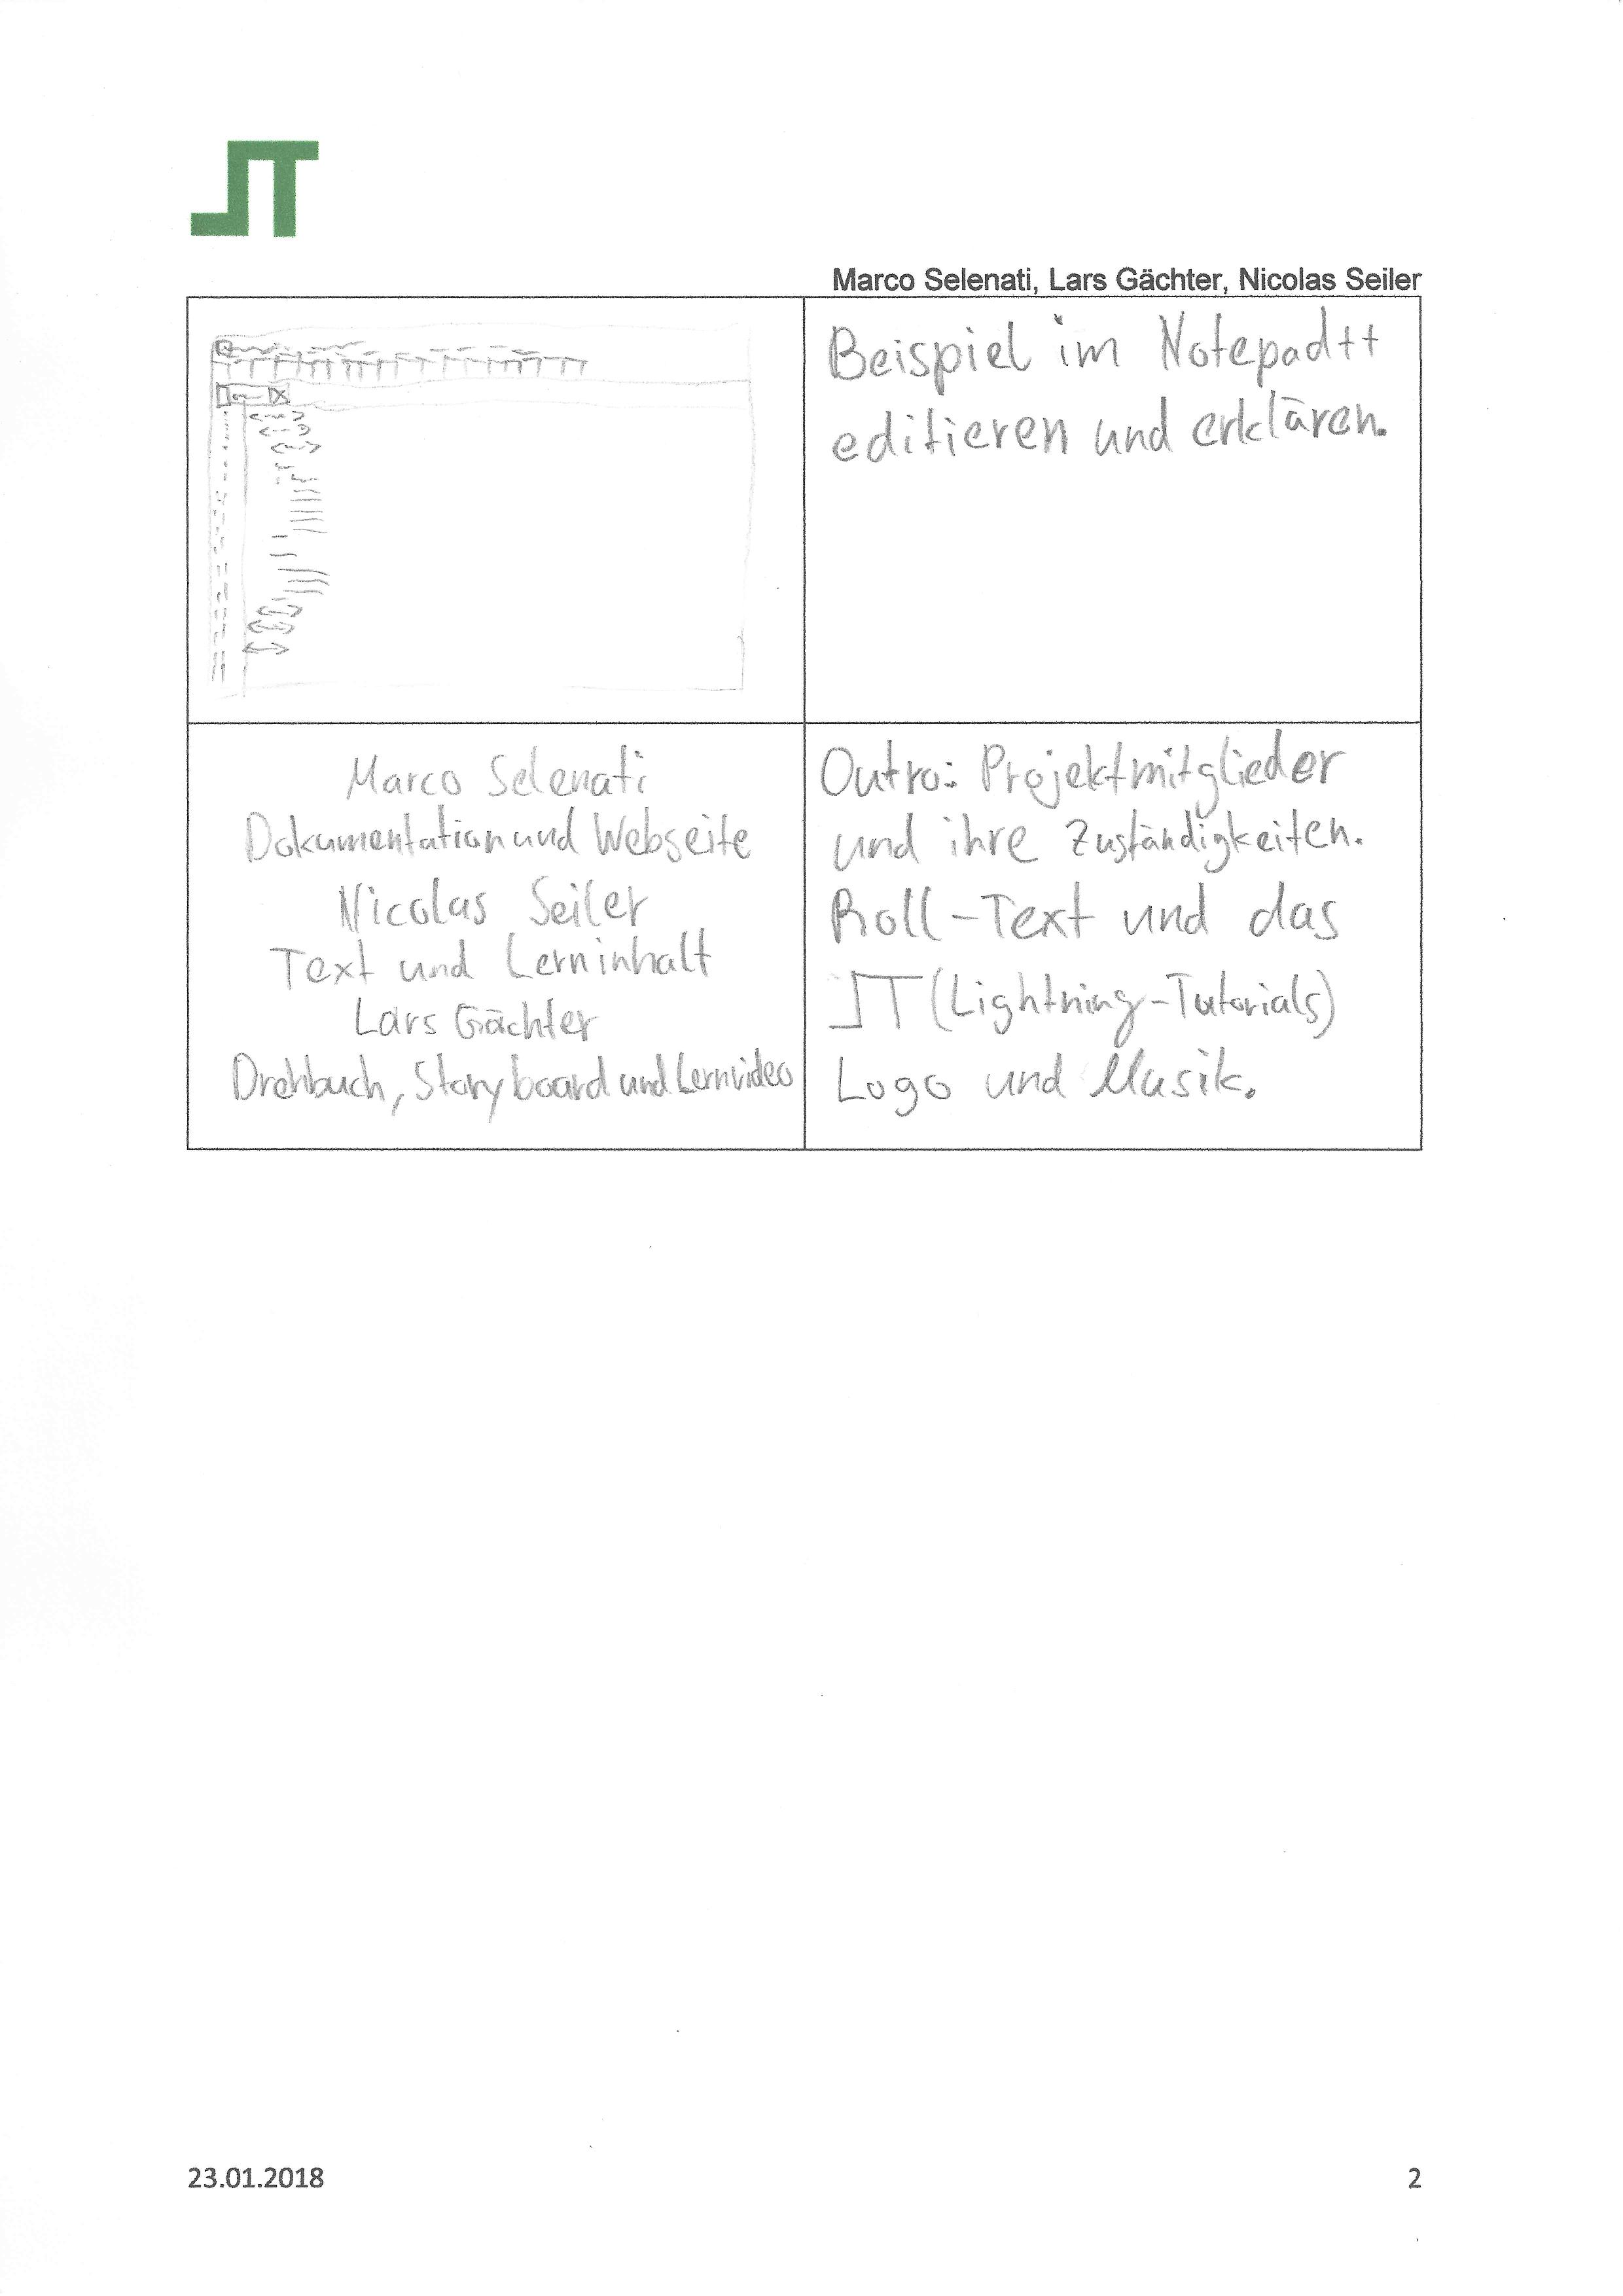 Marco Selenati, Lars Gächter, Nicolas Seiler
Beispiel im Notepad++
editieren und erklären.
Marco Selenati
Dokumentation und Webseite
Nicolas Seiler
Text und Lerninhalt
Lars Gächter
Drehbuch, Storyboard und Lernvideo
Outro: Projektmitglieder
und ihre Zuständigkeiten.
Roll-Text und das
LT (Lightning-Tutorials)
Logo und Musik.
23.01.2018
2